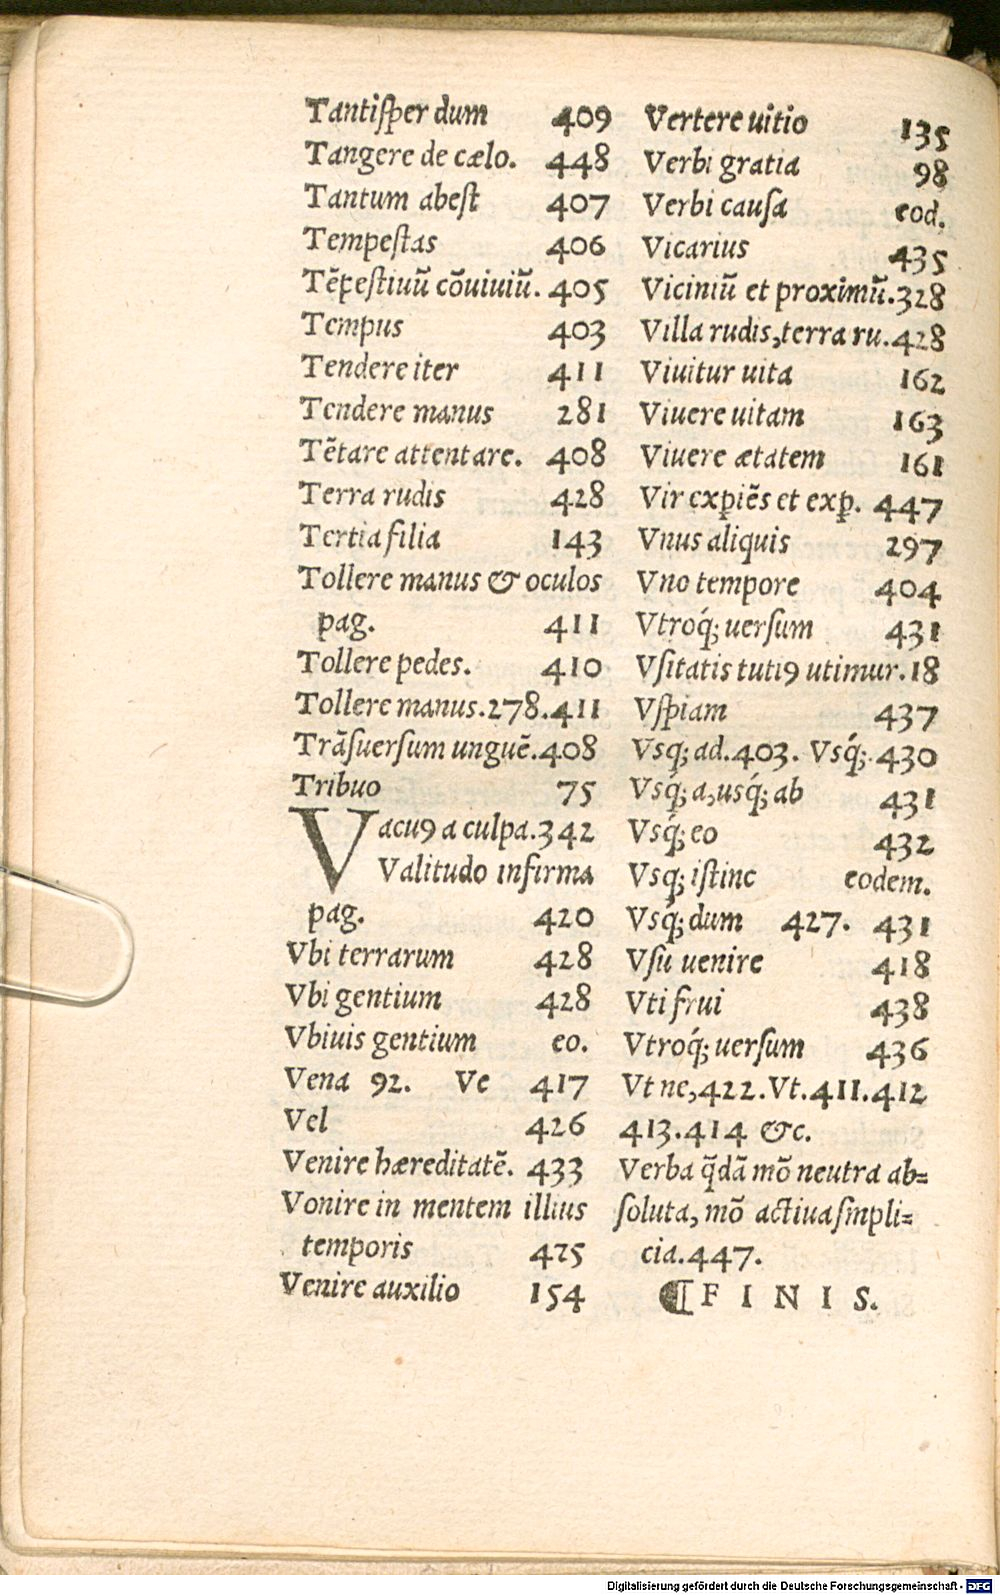 Tantiſper dum 409
Tangere de cælo. 448
Tantum abeſt 407
Tempeſtas 406
Tẽpeſtiuũ cõuiuiũ. 405
Tempus 403
Tendere iter 411
Tendere manus 281
Tẽtare attentare. 408
Terra rudis 428
Tertia filia 143
Tollere manus & oculos
pag. 411
Tollere pedes. 410
Tollere manus.278.411
Trãſuerſum unguẽ.408
Tribuo 75
Vacuꝰ a culpa.342
Valitudo infirma
pag. 420
Vbi terrarum 428
Vbi gentium 428
Vbiuis gentium eo.
Vena 92. Ve 417
Vel 426
Venire hæreditatẽ. 433
Vonire in mentem illius
temporis 425
Venire auxilio 154
Vertere uitio 135
Verbi gratia 98
Verbi cauſa eod.
Vicarius 435
Viciniũ et proximũ.328
Villa rudis,terra ru.428
Viuitur uita 162
Viuere uitam 163
Viuere ætatem 161
Vir exꝑiẽs et exꝑ. 447
Vnus aliquis 297
Vno tempore 404
Vtroq́; uerſum 431
Vſitatis tutiꝰ utimur.18
Vſpiam 437
Vsq; ad.403. Vsq́;.430
Vsq́; a,usq́; ab 431
Vsq́; eo 432
Vsq; iſtinc eodem.
Vsq́; dum 427. 431
Vſu uenire 418
Vti frui 438
Vtroq́; uerſum 436
Vt ne,422.Vt.411.412
413.414 &c.
Verba q̃dã mõ neutra ab=
ſoluta, mõ actiua ſmpli=
cia.447.
¶ F I N I S.
Digitalisierung gefördert durch die Deutsche Forschungsgemeinschaft - DFG